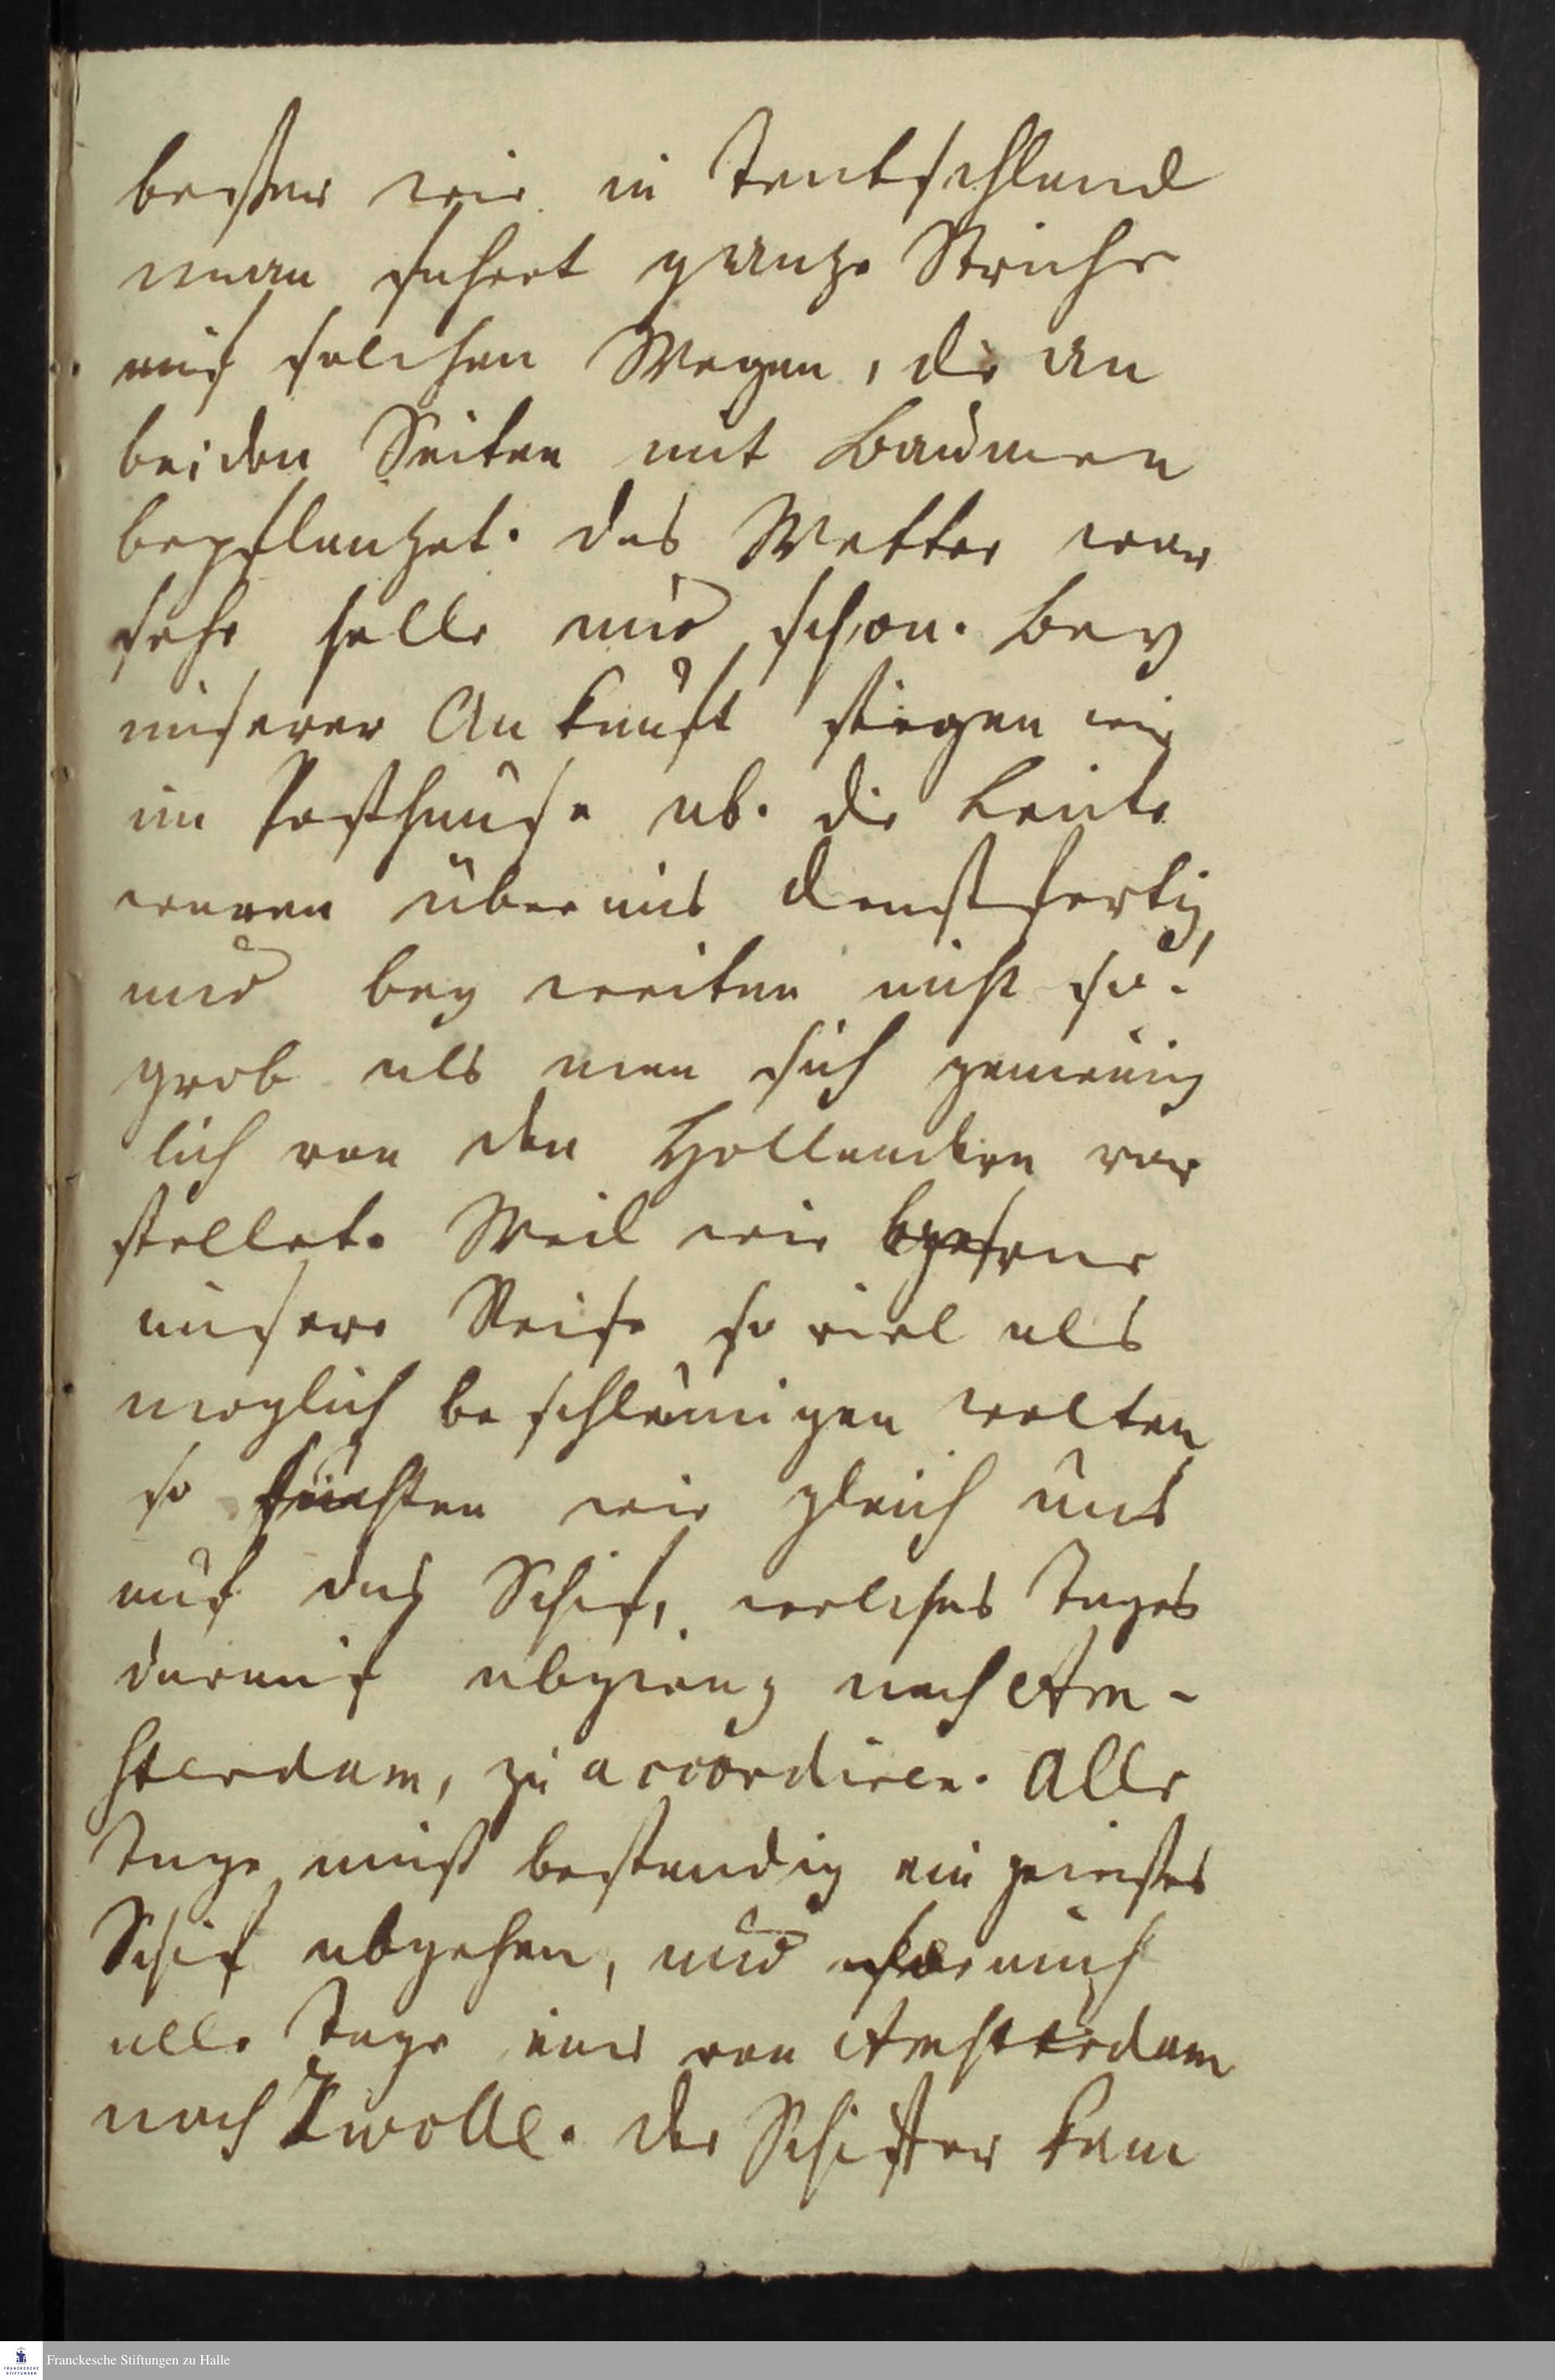 besser wie in Teutschland
man fahret ganze Striche
auf solchen Wegen, die an
beiden Seiten mit Baümen
bepflantzet. das Wetter war
sehr helle und schon. Bey
unserer Ankunft stiegen wir
im Posthause ab. die Leute
waren überaus dienstfertig,
und bey weiten nicht so
grob als man sich gemeinig
lich von den Hollandern vor
stellet. Weil wir gerne
unsere Reise so viel als
moglich beschleunigen wolten
so suchten wir gleich uns
auf das Schif, welches Tages
darauf abgieng nach Am-
sterdam, zu accordiren. Alle
Tage muß bestandig ein gewißes
Schif abgehen, und auch
alle Tage eins von Amsterdam
nach Zwolle. der Schiffer kam
Franckesche Stiftungen zu Halle